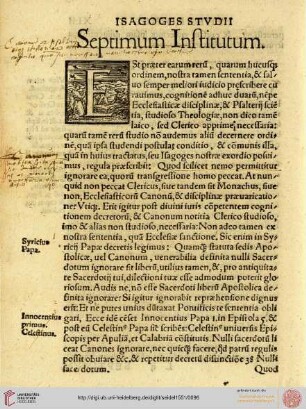 ISAGOGES STVDII
Septimum Institutum.
Est præter earum rerū, quarum hucusq́;
ordinem, nostra tamen sententia, & sal
uo semper meliori iudicio præscribere cu
rauimus, cognitione adhuc duarū, nēpe
Ecclesiasticæ disciplinæ, & Psalterij sciē
tia, studioso Theologiæ, non dico tamē
laico, sed Clerico apprimè necessaria:
quarū tamē rerū studio nō audemus aliū decernere ordi
nē, quā ipsa studendi postulat conditio, & cōmunis illa,
quā in huius tractatus, seu Isagoges nostræ exordio posui=
mus, regula præscribit: Quod scilicet nemo permittitur
ignorare ea, quorū transgressione homo peccat. At nun=
quid non peccat Clericus, siue tandem sit Monachus, siue
non, Ecclesiasticorū Canonū, & disciplinæ præuaricatio=
ner Vtiq́;. Erit igitur post diuini iuris cōpetentem cogni=
tionem decretorū, & Canonum notitia Clerico studioso,
imo & alias non studioso, necessaria: Non adeo tamen ex
nostra sententia, quā Ecclesiæ sanctione. Sic enim in Syri
Syricius
Papa.
cij Papæ decretis legimus: Quamq́; statuta sedis Apo=
stolicæ, uel Canonum, uenerabilia definita nulli Sacer=
dotum ignorare sit liberū, utilius tamen, & pro antiquita=
te Sacerdotij tui, dilectioni tuæ esse admodum poterit glo=
riosum. Audis ne, nō esse Sacerdoti liberū Apostolica de=
finita ignorare? Si ignarit reprehensione dignus
erit: Et ne putes unius duntaxat Pontificis te sententia obli
gari, Ecce idē cēset Innocentius Papa in Epistola
Innocentius
primus.
Celestinus.
post eū Celestin⁹ Papa sit scribēs: Celestin⁹ uniuersis Epis
copis per Apuliā, et Calabriā constitutis: Nulli sacerdotū li
ceat Canones ignorare, nec quicq̄ facere, quod patrū regulis
possit obuiare &c, & repetitur decreti distinctiōe 38 Nulli
sacerdotum.
Quod
http://digi.ub.uni-heidelberg.de/diglit/seidel1551/0086